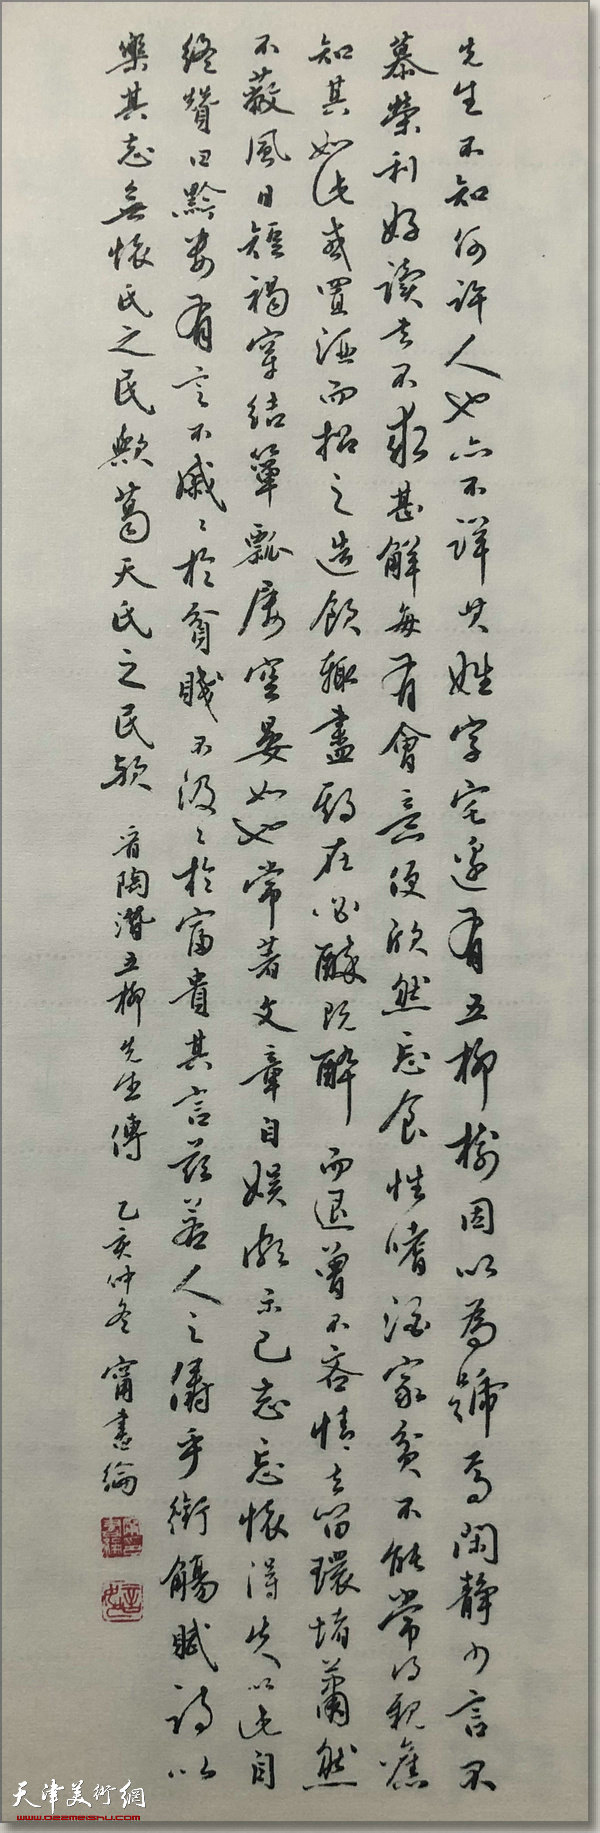 先生不知何許人也亦不詳其姓字宅邊有五柳樹因以為號焉閑靜少言不
慕榮利好讀書不求甚解每有會意便欣然忘食性嗜酒家貧不能常得親舊
知其如此或置酒而招之造飲輒盡期在必醉既醉而退曾不吝情去留環堵蕭然
不蔽風日短褐穿結簞瓢屢空晏如也常著文章自娛頗示己志忘懷得失以此自
終贊曰黔婁有言不戚〻於貧賤不汲〻於富貴其言茲若人之儔乎銜觴賦詩以
樂其志無懷氏之民歟葛天氏之民歟 晉陶潛五柳先生傳 乙亥仲冬 甯書綸
天津美術網
www.022meishu.com